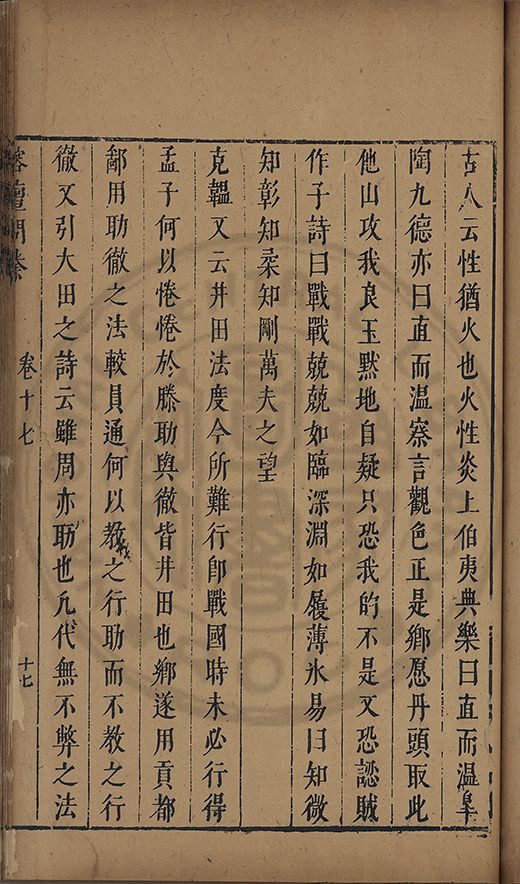 古人云性猶火也火性炎上伯夷典樂曰直而温臯
陶九德亦曰直而温察言觀色正是鄉愿丹頭取此
他山攻我良玉黙地自疑只恐我的不是又恐認賊
作子詩曰戰戰兢兢如臨深淵如履薄氷易曰知微
知彰知柔知剛萬夫之望
克韞又云井田法度今所難行卽戰國時未必行得
孟子何以惓惓於滕助與徹皆井田也鄉遂用貢都
鄙用助徹之法較員通何以教之行助而不教之行
徹又引大田之詩云雖周亦助也凢代無不弊之法
榕壇問業
卷十七
十七